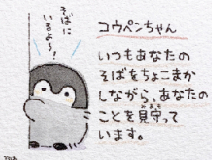 そばに
いるよ〜!
コウペンちゃん
いつもあなたの
そばをちょこまか
しながら、あなたの
ことを見守って
います。